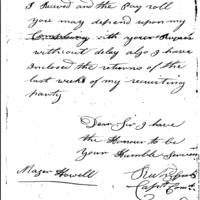 I Received and the Pay roll
you may depend upon my
Complying with your Request
without delay also I have
inclosed the returns of the
last week of my recruiting
party
Dear Sir I have
the Honour to be
Your Humble Servant
Major Howell
Capt Comt